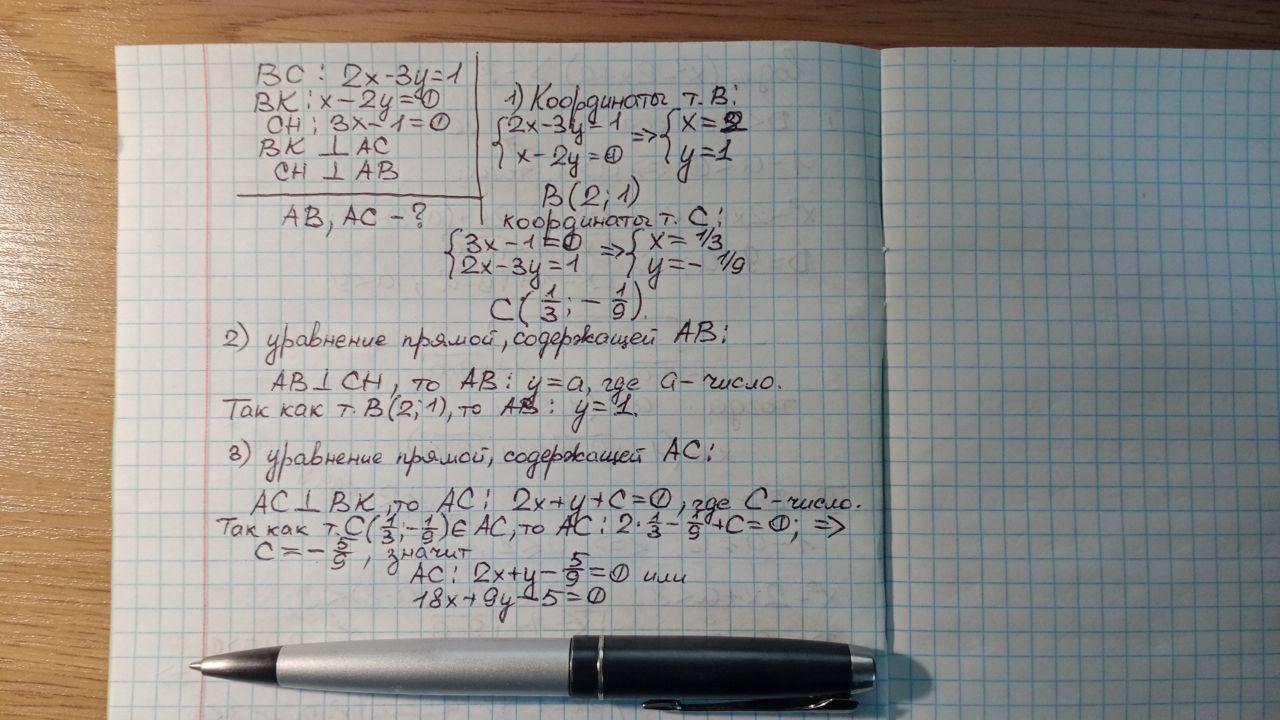 BC: 2x-3y=1
BK: x-2y=0
CH: 3x-1=0
BK ⊥ AC
CH ⊥ AB
AB, AC - ?
1) Координаты т. B:
{2x-3y=1 => {x=2
x-2y=0 y=1
B(2; 1)
координаты т. C:
{3x-1=0 => {x=1/3
2x-3y=1 y=-1/9
C(1/3; -1/9).
2) уравнение прямой, содержащей AB:
AB⊥CH, то AB: y=a, где a-число.
Так как т. B(2; 1), то AB: y=1.
3) уравнение прямой, содержащей AC:
AC⊥BK, то AC: 2x+y+C=0, где C-число.
Так как т. C(1/3; -1/9)∈AC, то AC: 2·1/3-1/9+C=0; =>
C=-5/9, значит
AC: 2x+y-5/9=0 или
18x+9y-5=0